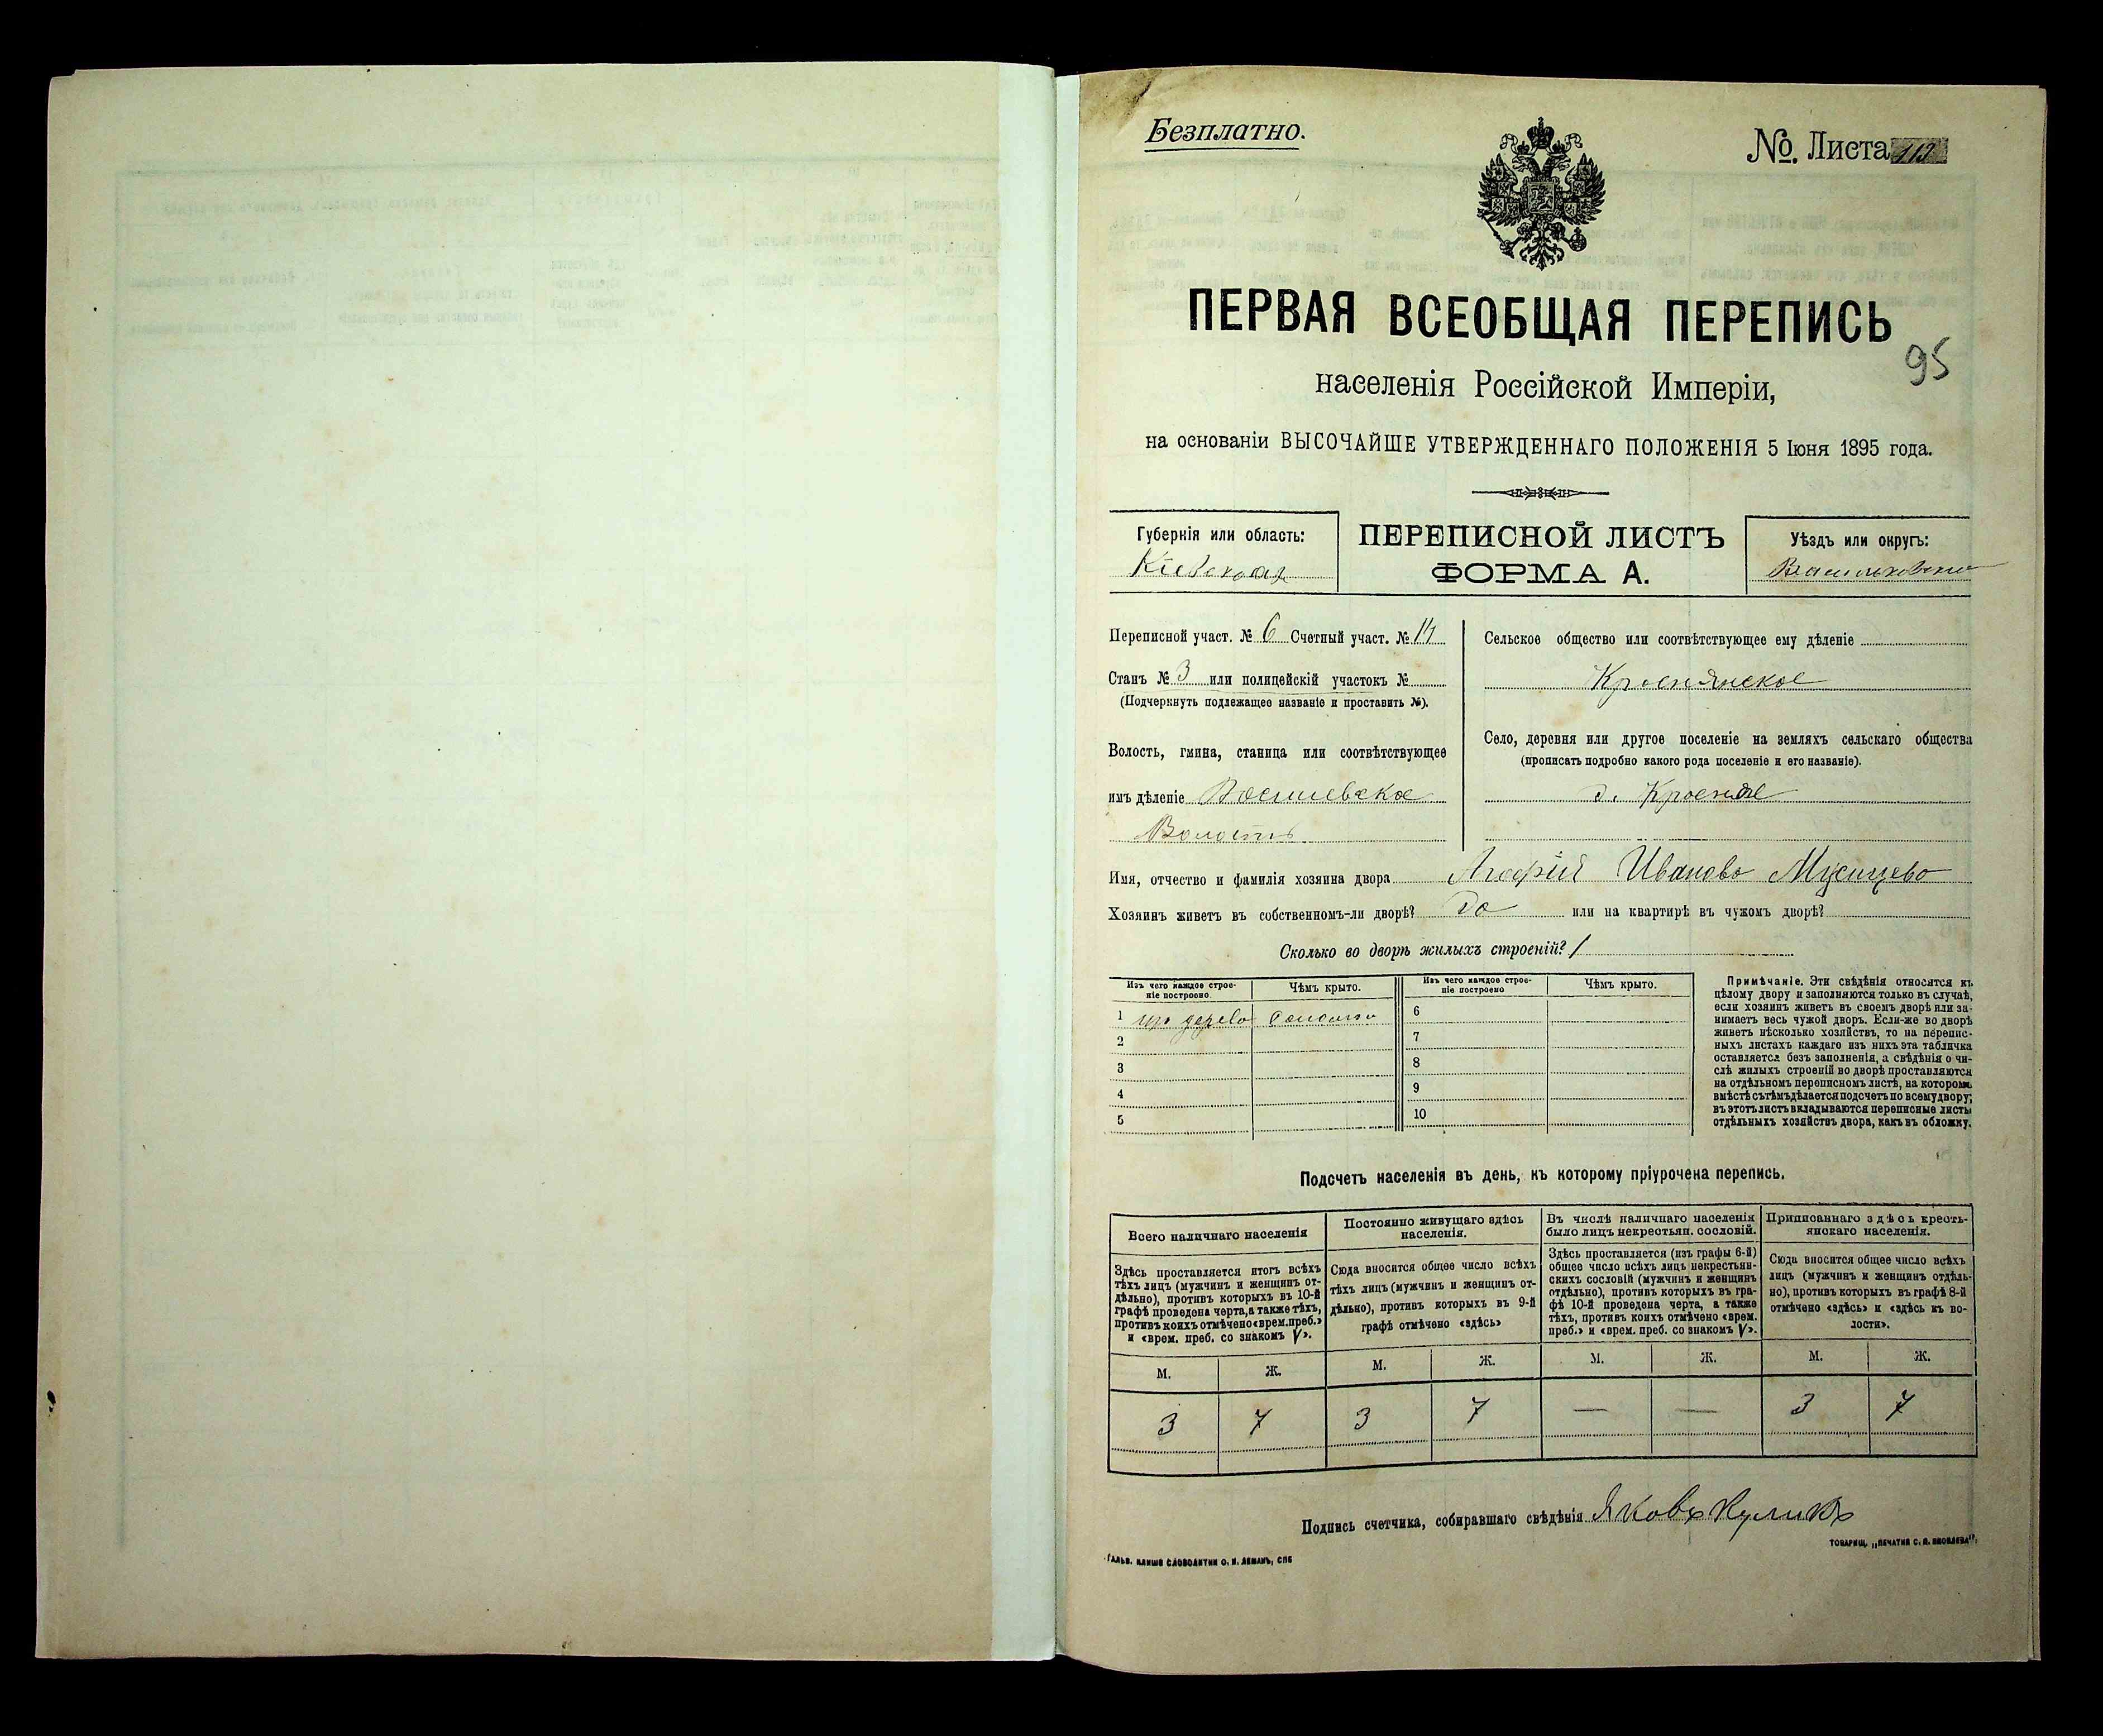 Безплатно.
№. Листа 113
ПЕРВАЯ ВСЕОБЩАЯ ПЕРЕПИСЬ
95
населенія Россійской Имперіи,
на основаніи ВЫСОЧАЙШЕ УТВЕРЖДЕННАГО ПОЛОЖЕНІЯ 5 Іюня 1895 года.
Губернія или область:
Кіевская
ПЕРЕПИСНОЙ ЛИСТЪ
ФОРМА А.
Уѣздъ или округъ:
Васильковскій
Переписной участ. № 6 Счетный участ. № 14
Станъ № 3 или полицейскій участокъ №
(Подчеркнуть подлежащее названіе и проставить №).
Волость, гмина, станица или соотвѣтствующее
имъ дѣленіе
Волость
Сельское общество или соотвѣтствующее ему дѣленіе
Краснянское
Село, деревня или другое поселеніе на земляхъ сельскаго общества
(прописать подробно какого рода поселеніе и его названіе).
д. Красная
Имя, отчество и фамилія хозяина двора Иванова
Хозяинъ живетъ въ собственномъ-ли дворѣ? да или на квартирѣ въ чужомъ дворѣ?
Сколько во дворѣ жилыхъ строеній? 1
Изъ чего каждое строе-
ніе построено
Чѣмъ крыто.
Изъ чего каждое строе-
ніе построено
Чѣмъ крыто.
1 дерева
2
3
4
5
6
7
8
9
10
Примѣчаніе. Эти свѣдѣнія относятся къ
цѣлому двору и заполняются только въ случаѣ,
если хозяинъ живетъ въ своемъ дворѣ или за-
нимаетъ весь чужой дворъ. Если-же во дворѣ
живетъ нѣсколько хозяйствъ, то на перепис-
ныхъ листахъ каждаго изъ нихъ эта табличка
оставляется безъ заполненія, а свѣдѣнія о чи-
слѣ жилыхъ строеній во дворѣ проставляются
на отдѣльномъ переписномъ листѣ, на которомъ
вмѣстѣ съ тѣмъ дѣлается подсчетъ по всему двору;
въ этотъ листъ вкладываются переписные листы
отдѣльныхъ хозяйствъ двора, какъ въ обложку.
Подсчетъ населенія въ день, къ которому пріурочена перепись.
Всего наличнаго населенія
Здѣсь проставляется итогъ всѣхъ
тѣхъ лицъ (мужчинъ и женщинъ от-
дѣльно), противъ которыхъ въ 10-й
графѣ проведена черта, а также тѣхъ,
противъ коихъ отмѣчено «врем. преб.»
и «врем. преб. со знакомъ V».
Постоянно живущаго здѣсь
населенія.
Сюда вносится общее число всѣхъ
тѣхъ лицъ (мужчинъ и женщинъ от-
дѣльно), противъ которыхъ въ 9-й
графѣ отмѣчено «здѣсь»
Въ числѣ наличнаго населенія
было лицъ некрестьян. сословій.
Здѣсь проставляется (изъ графы 6-й)
общее число всѣхъ лицъ некрестьян-
скихъ сословій (мужчинъ и женщинъ
отдѣльно), противъ которыхъ въ гра-
фѣ 10-й проведена черта, а также
тѣхъ, противъ коихъ отмѣчено «врем.
преб.» и «врем. преб. со знакомъ V».
Приписаннаго здѣсь кресть-
янскаго населенія.
Сюда вносится общее число всѣхъ
лицъ (мужчинъ и женщинъ отдѣль-
но), противъ которыхъ въ графѣ 8-й
отмѣчено «здѣсь» и «здѣсь въ во-
лости».
М. Ж. М. Ж. М. Ж. М. Ж.
3 7 3 7 — — 3 7
Подпись счетчика, собиравшаго свѣдѣнія Яковъ Куликъ
ГАЛЬВ. КЛИШЕ СЛОВОЛИТНИ О. И. ЛЕМАНЪ, СПБ
ТОВАРИЩ. „ПЕЧАТНЯ С. П. ЯКОВЛЕВА"